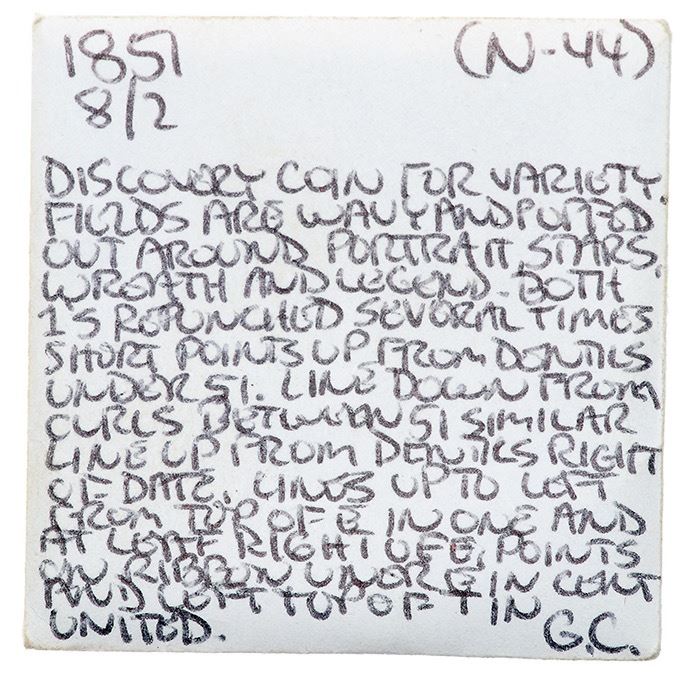 1851 (N-44)
8/2
DISCOVERY COIN FOR VARIETY.
FIELDS ARE WAVY AND PUFFED
OUT AROUND PORTRAIT, STARS,
WREATH AND LEGEND. BOTH
1S REPUNCHED SEVERAL TIMES
SHORT POINTS UP FROM DENTICLS
UNDER 51. LINE DOWN FROM
CURLS BETWEEN 51 SIMILAR
LINE UP FROM DENTICLS RIGHT
OF DATE. LINES UP TO LEFT
FROM TOP OF E IN ONE AND
AT LEAF RIGHT OF E. POINTS
ON RIBBON UNDER E IN CENT
AND LEFT TOP OF T IN
UNITED. G.C.